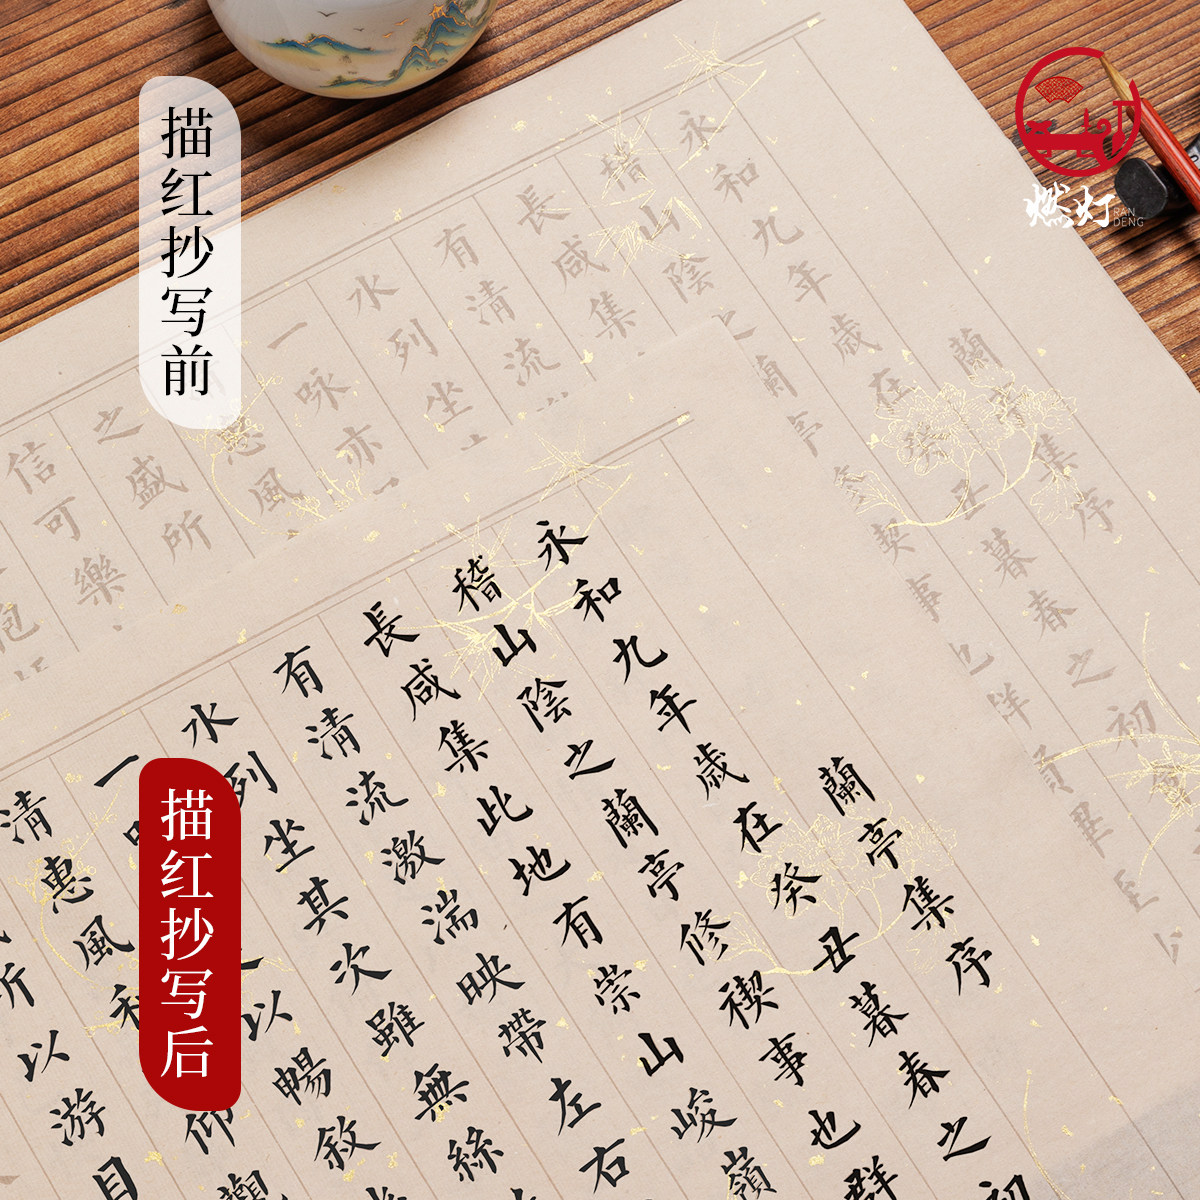 描红抄写前
燃灯
RAN
DENG
蘭亭集序
永和九年歲在癸丑暮春之初
稽山陰之蘭亭修禊事也群賢畢至
長咸集
有清流
水列坐
一咏亦
惠風
之盛所
信可樂
抱
描红抄写后
蘭亭集序
永和九年歲在癸丑暮春之初
稽山陰之蘭亭修禊事也群
長咸集此地有崇山峻嶺
有清流激湍映帶左右
水列坐其次雖無絲
一以暢敘
清惠風和仰觀
所以游目